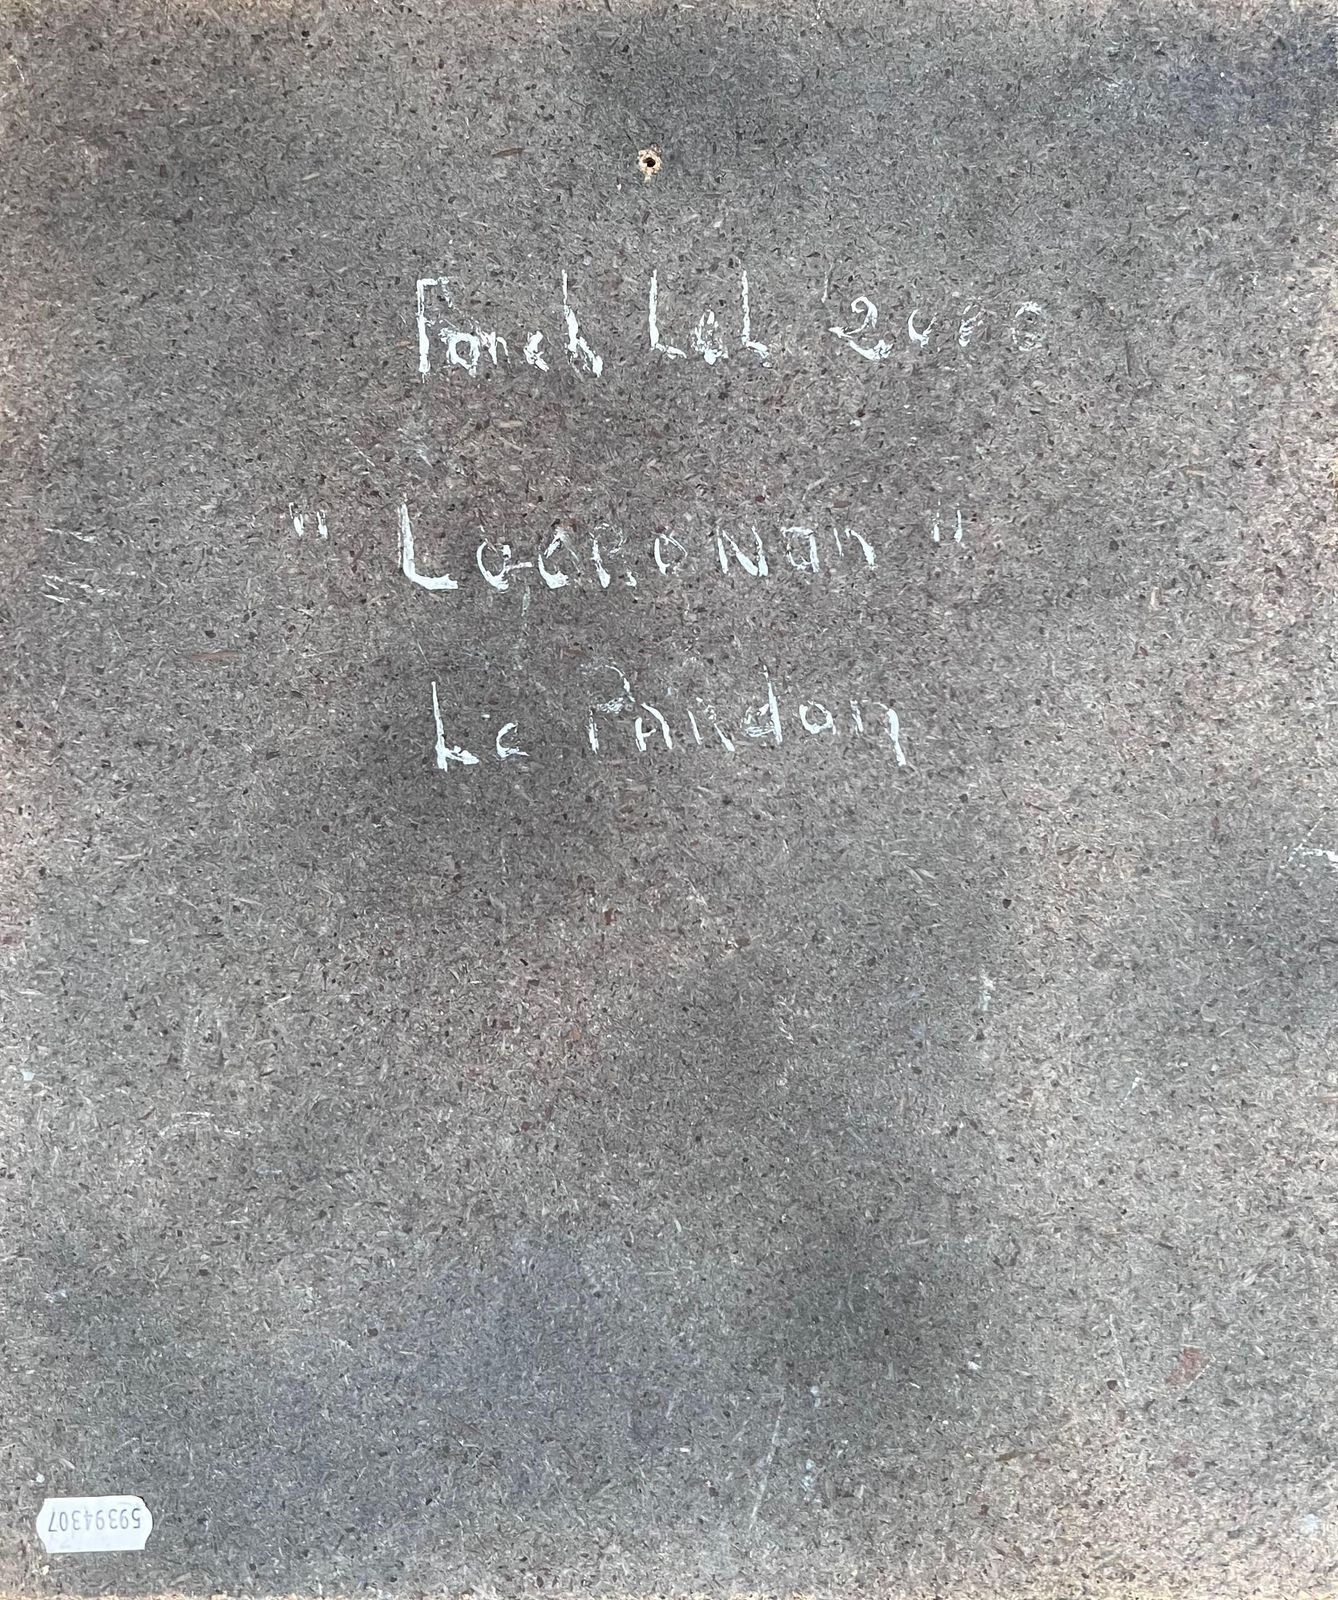 Fanch Lel 2000
" LocRoNan "
Le Pardon
59394307